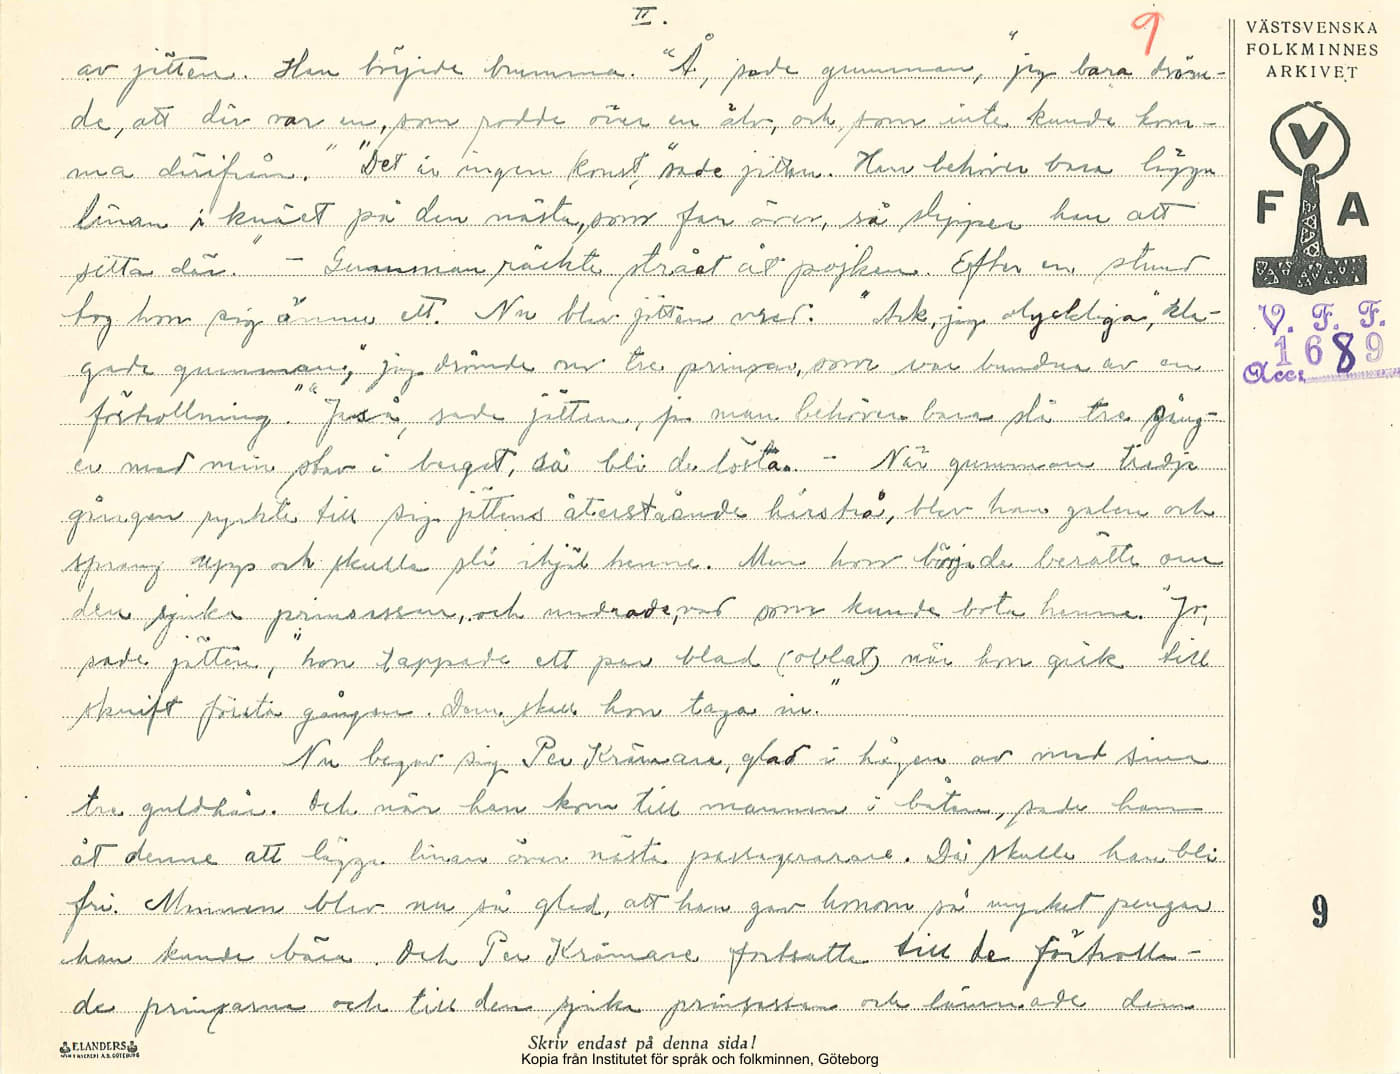 II.
9
VÄSTSVENSKA
FOLKMINNES
ARKIVET
V
F A
V. F. F.
1689
Acc:
av jätten. Han började brumma. "Å, sade gumman, "jag bara dröm-
de, att där var en, som rodde över en älv, och som inte kunde kom-
ma därifrån." "Det är ingen konst," sade jätten. Han behöver bara lägga
linan i knäet på den nästa, som far över, så slipper han att
sitta där." - Gumman räckte strået åt pojken. Efter en stund
tog hon sig ännu ett. Nu blev jätten vred. "Ack, jag olyckliga", kla-
gade gumman, "jag drömde om tre prinsar, som var bundna av en
förtrollning." "Jaså, sade jätten, ja man behöver bara slå tre gång-
er med min stav i berget, så bli de lösta. - När gumman tredje
gången ryckte till sig jättens återstående hårstrå, blev han galen och
sprang upp och skulle slå ihjäl henne. Men hon började berätta om
den sjuka prinsessan, och undrade, vad som kunde bota henne. "Jo,
sade jätten, "hon tappade ett par blad (oblat) när hon gick till
skrift första gången. Dem skall hon taga in."
Nu begav sig Per Krämare, glad i hågen av med sina
tre guldhår. Och när han kom till mannen i båten, sade han
åt denne att lägga linan över nästa passagerare. Då skulle han bli
fri. Mannen blev nu så glad, att han gav honom så mycket pengar
han kunde bära. Och Per Krämare fortsatte till de förtrolla-
de prinsarna och till den sjuka prinsessan och lämnade dem
9
F. LANDERS
Skriv endast på denna sida!
Kopia från Institutet för språk och folkminnen, Göteborg